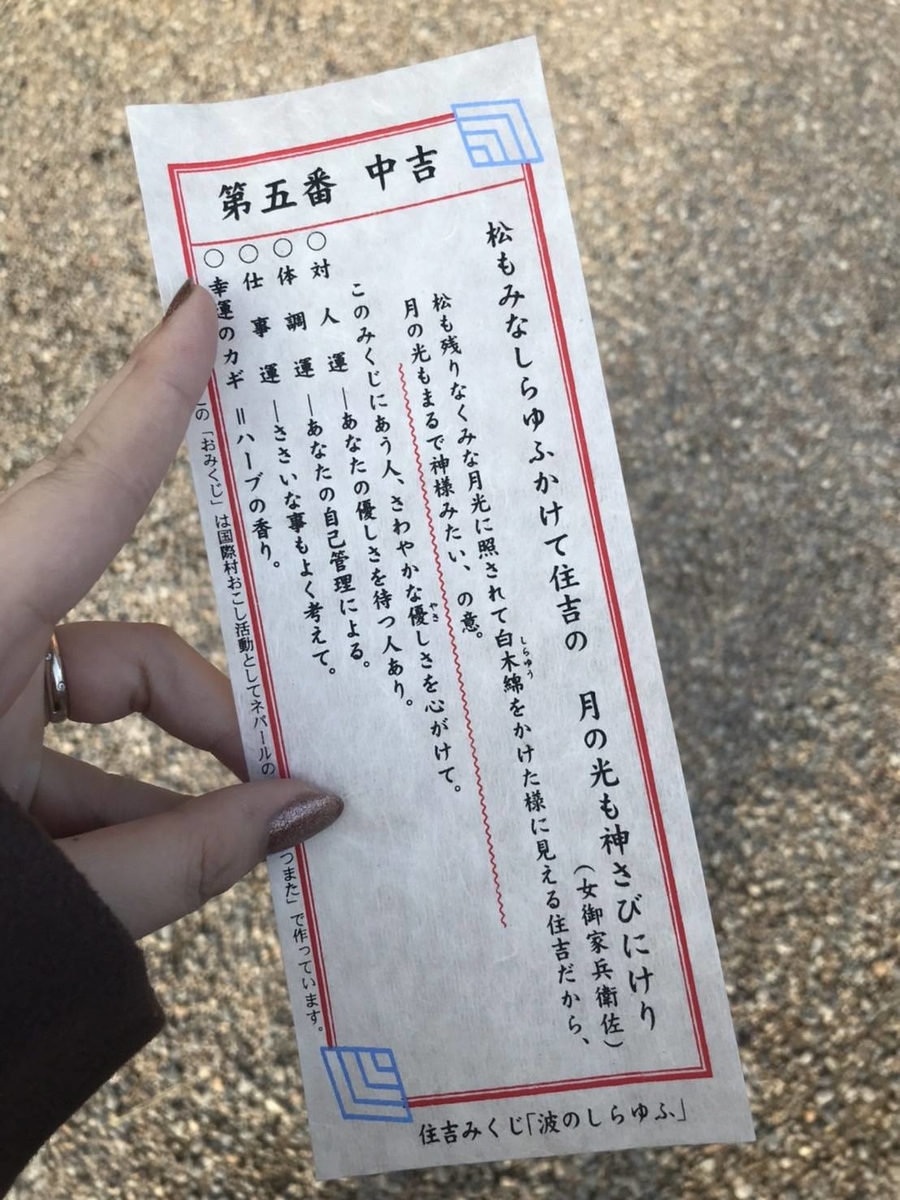 第五番 中吉
松もみなしらゆふかけて住吉の 月の光も神さびにけり
(女御家兵衛佐)
松も残りなくみな月光に照されて白木綿をかけた様に見える住吉だから、
しらゆう
月の光もまるで神様みたい、の意。
このみくじにあう人、さわやかな優しさを心がけて。
やさ
○対人運―あなたの優しさを待つ人あり。
○体調運―あなたの自己管理による。
○仕事運―ささいな事もよく考えて。
○幸運のカギ=ハーブの香り。
の「おみくじ」は国際村おこし活動としてネパールの
つまた」で作っています。
住吉みくじ「波のしらゆふ」